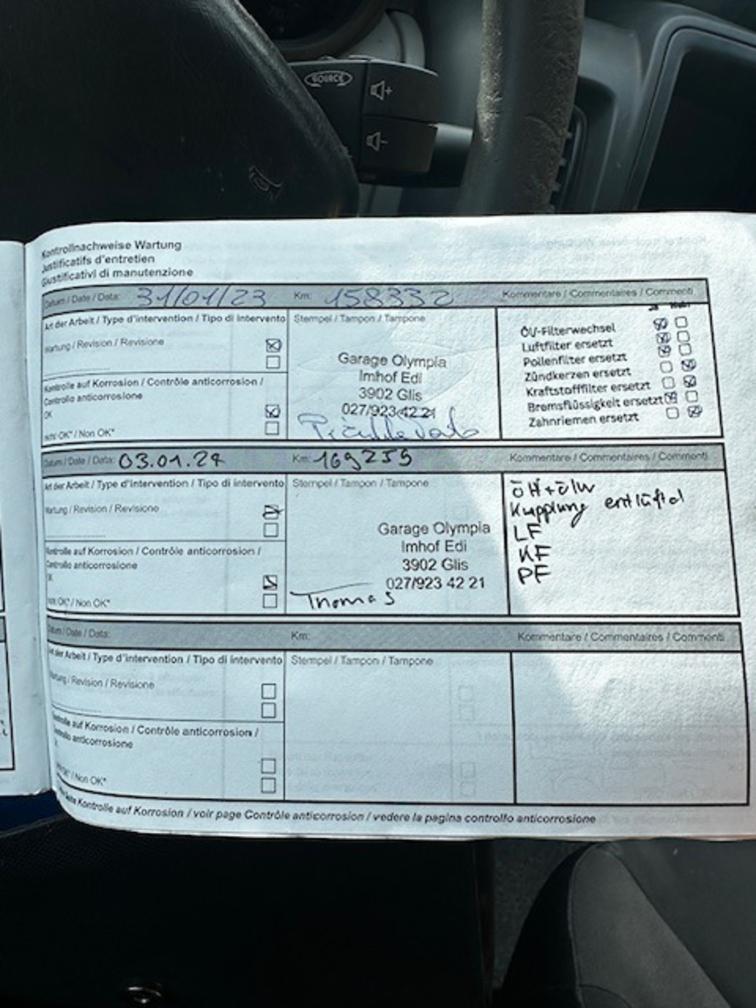 SOURCE
Kontrollnachweise Wartung
Justificatifs d'entretien
Giustificativi di manutenzione
Datum / Date / Data: 31/01/23 Km: 158332 Kommentare / Commentaires / Commenti
Art der Arbeit / Type d'intervention / Tipo di intervento Stempel / Tampon / Tampone
Wartung / Revision / Revisione
Kontrolle auf Korrosion / Contrôle anticorrosion /
Controllo anticorrosione
OK
nicht OK* / Non OK*
Garage Olympia
Imhof Edi
3902 Glis
027/923 42 21
ÖL/-Filterwechsel
Luftfilter ersetzt
Pollenfilter ersetzt
Zündkerzen ersetzt
Kraftstofffilter ersetzt
Bremsflüssigkeit ersetzt
Zahnriemen ersetzt
Datum / Date / Data: 03.01.24 Km: 169259 Kommentare / Commentaires / Commenti
Art der Arbeit / Type d'intervention / Tipo di intervento Stempel / Tampon / Tampone
Wartung / Revision / Revisione
Kontrolle auf Korrosion / Contrôle anticorrosion /
Controllo anticorrosione
OK
nicht OK* / Non OK*
Garage Olympia
Imhof Edi
3902 Glis
027/923 42 21
Thomas
Kupplung entlüftet
LF
KF
PF
Datum / Date / Data: Km: Kommentare / Commentaires / Commenti
Art der Arbeit / Type d'intervention / Tipo di intervento Stempel / Tampon / Tampone
Wartung / Revision / Revisione
Kontrolle auf Korrosion / Contrôle anticorrosion /
Controllo anticorrosione
OK* / Non OK*
Seite Kontrolle auf Korrosion / voir page Contrôle anticorrosion / vedere la pagina controllo anticorrosione